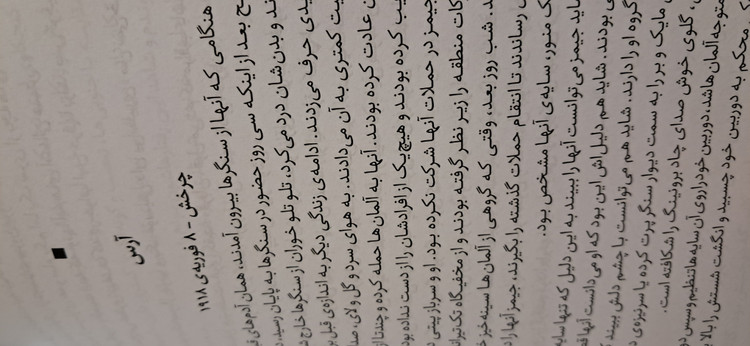 آرس
چرخش - ۸ فوریه‌ی ۱۹۱۸
هنگامی که آنها از سنگرها بیرون آمدند، همان آدم‌های
بعد از اینکه سی روز حضور در سنگرها به پایان رسید،
و بدن‌شان درد می‌کرد، تلو تلو خوران از سنگرها خارج
حرف می‌زدند. ادامه‌ی زندگی دیگر به اندازه‌ی قبل
کمتری به آن می‌دادند. به هوای سرد و گل و لای،
عادت کرده بودند. آنها به آلمان‌ها حمله کرده و چند تا از
کرده بودند و هیچ یک از افرادشان را از دست نداده
جیمز در حملات آنها شرکت نکرده بود. او و سرباز پیتی
منطقه را زیر نظر گرفته بودند و از مخفیگاه
شب روز بعد، وقتی که گروهی از آلمان‌ها سینه‌خیز
رساندند تا انتقام حملات گذشته را بگیرند، جیمز آنها را
منور، سایه‌ی آنها مشخص بود.
جیمز می‌توانست آنها را ببیند به این دلیل که تنها
بودند. شاید هم دلیل‌اش این بود که او می‌دانست آنها
گروه او را دارند. شاید هم می‌توانست با چشم دلش ببیند
ملیک و بر را به سمت دیوار سنگر پرت کرده یا سرنیزه‌ی
گلوی خوش صدای چاد برونینگ را شکافته است.
متوجه آلمان‌ها شد، دوربین خود را روی آن سایه‌ها تنظیم و سپس
محکم به دوربین خود چسبید و انگشت شستش را بالا